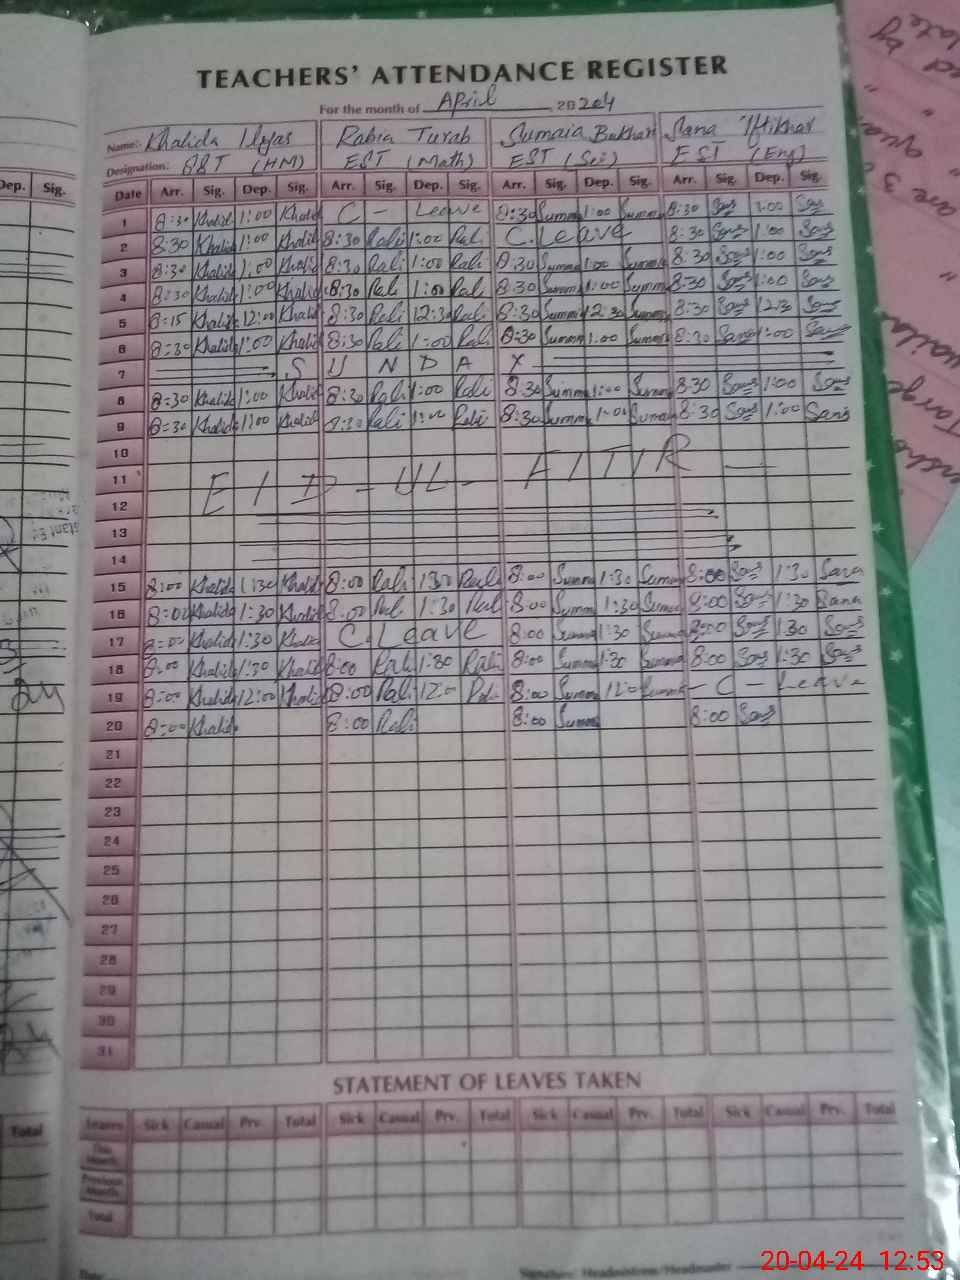 TEACHERS' ATTENDANCE REGISTER
For the month of April 2024
Name:- Khalida Ilyas Rabia Turab Sumaia Bukhari Sana Iftikhar
Designation: SST (HM) EST (Math) EST (Sci) EST (Eng)
Dep. Sig. Date Arr. Sig. Dep. Sig. Arr. Sig. Dep. Sig. Arr. Sig. Dep. Sig. Arr. Sig. Dep. Sig.
1 8:30 Khalida 1:00 Khalida C - Leave 8:30 Summ 1:00 Summ 8:30 Sana 1:00 Sana
2 8:30 Khalida 1:00 Khalida 8:30 Rabi 1:00 Rabi C. Leave 8:30 Sana 1:00 Sana
3 8:30 Khalida 1:00 Khalida 8:30 Rabi 1:00 Rabi 8:30 Summ 1:00 Summ 8:30 Sana 1:00 Sana
4 8:30 Khalida 1:00 Khalida 8:30 Rabi 1:00 Rabi 8:30 Summ 1:00 Summ 8:30 Sana 1:00 Sana
5 8:15 Khalida 12:00 Khalida 8:30 Rabi 12:30 Rabi 8:30 Summ 12:30 Summ 8:30 Sana 12:30 Sana
6 8:30 Khalida 1:00 Khalida 8:30 Rabi 1:00 Rabi 8:30 Summ 1:00 Summ 8:30 Sana 1:00 Sana
7 S U N D A Y
8 8:30 Khalida 1:00 Khalida 8:30 Rabi 1:00 Rabi 8:30 Summ 1:00 Summ 8:30 Sana 1:00 Sana
9 8:30 Khalida 1:00 Khalida 8:30 Rabi 1:00 Rabi 8:30 Summ 1:00 Summ 8:30 Sana 1:00 Sana
10
11 EID - UL - FITIR
12
13
14
15 8:00 Khalida 1:30 Khalida 8:00 Rabi 1:30 Rabi 8:00 Summ 1:30 Summ 8:00 Sana 1:30 Sana
16 8:00 Khalida 1:30 Khalida 8:00 Rabi 1:30 Rabi 8:00 Summ 1:30 Summ 8:00 Sana 1:30 Sana
17 8:00 Khalida 1:30 Khalida C. Leave 8:00 Summ 1:30 Summ 8:00 Sana 1:30 Sana
18 8:00 Khalida 1:30 Khalida 8:00 Rabi 1:30 Rabi 8:00 Summ 1:30 Summ 8:00 Sana 1:30 Sana
19 8:00 Khalida 12:00 Khalida 8:00 Rabi 12:00 Rabi 8:00 Summ 12:00 Summ - C - Leave
20 8:00 Khalida 8:00 Rabi 8:00 Summ 8:00 Sana
21
22
23
24
25
26
27
28
29
30
31
STATEMENT OF LEAVES TAKEN
Total Leaves Sick Casual Prv. Total Sick Casual Prv. Total Sick Casual Prv. Total Sick Casual Prv. Total
This Month
Previous Month
Total
Date Signature: Headmistress/Headmaster
20-04-24 12:53